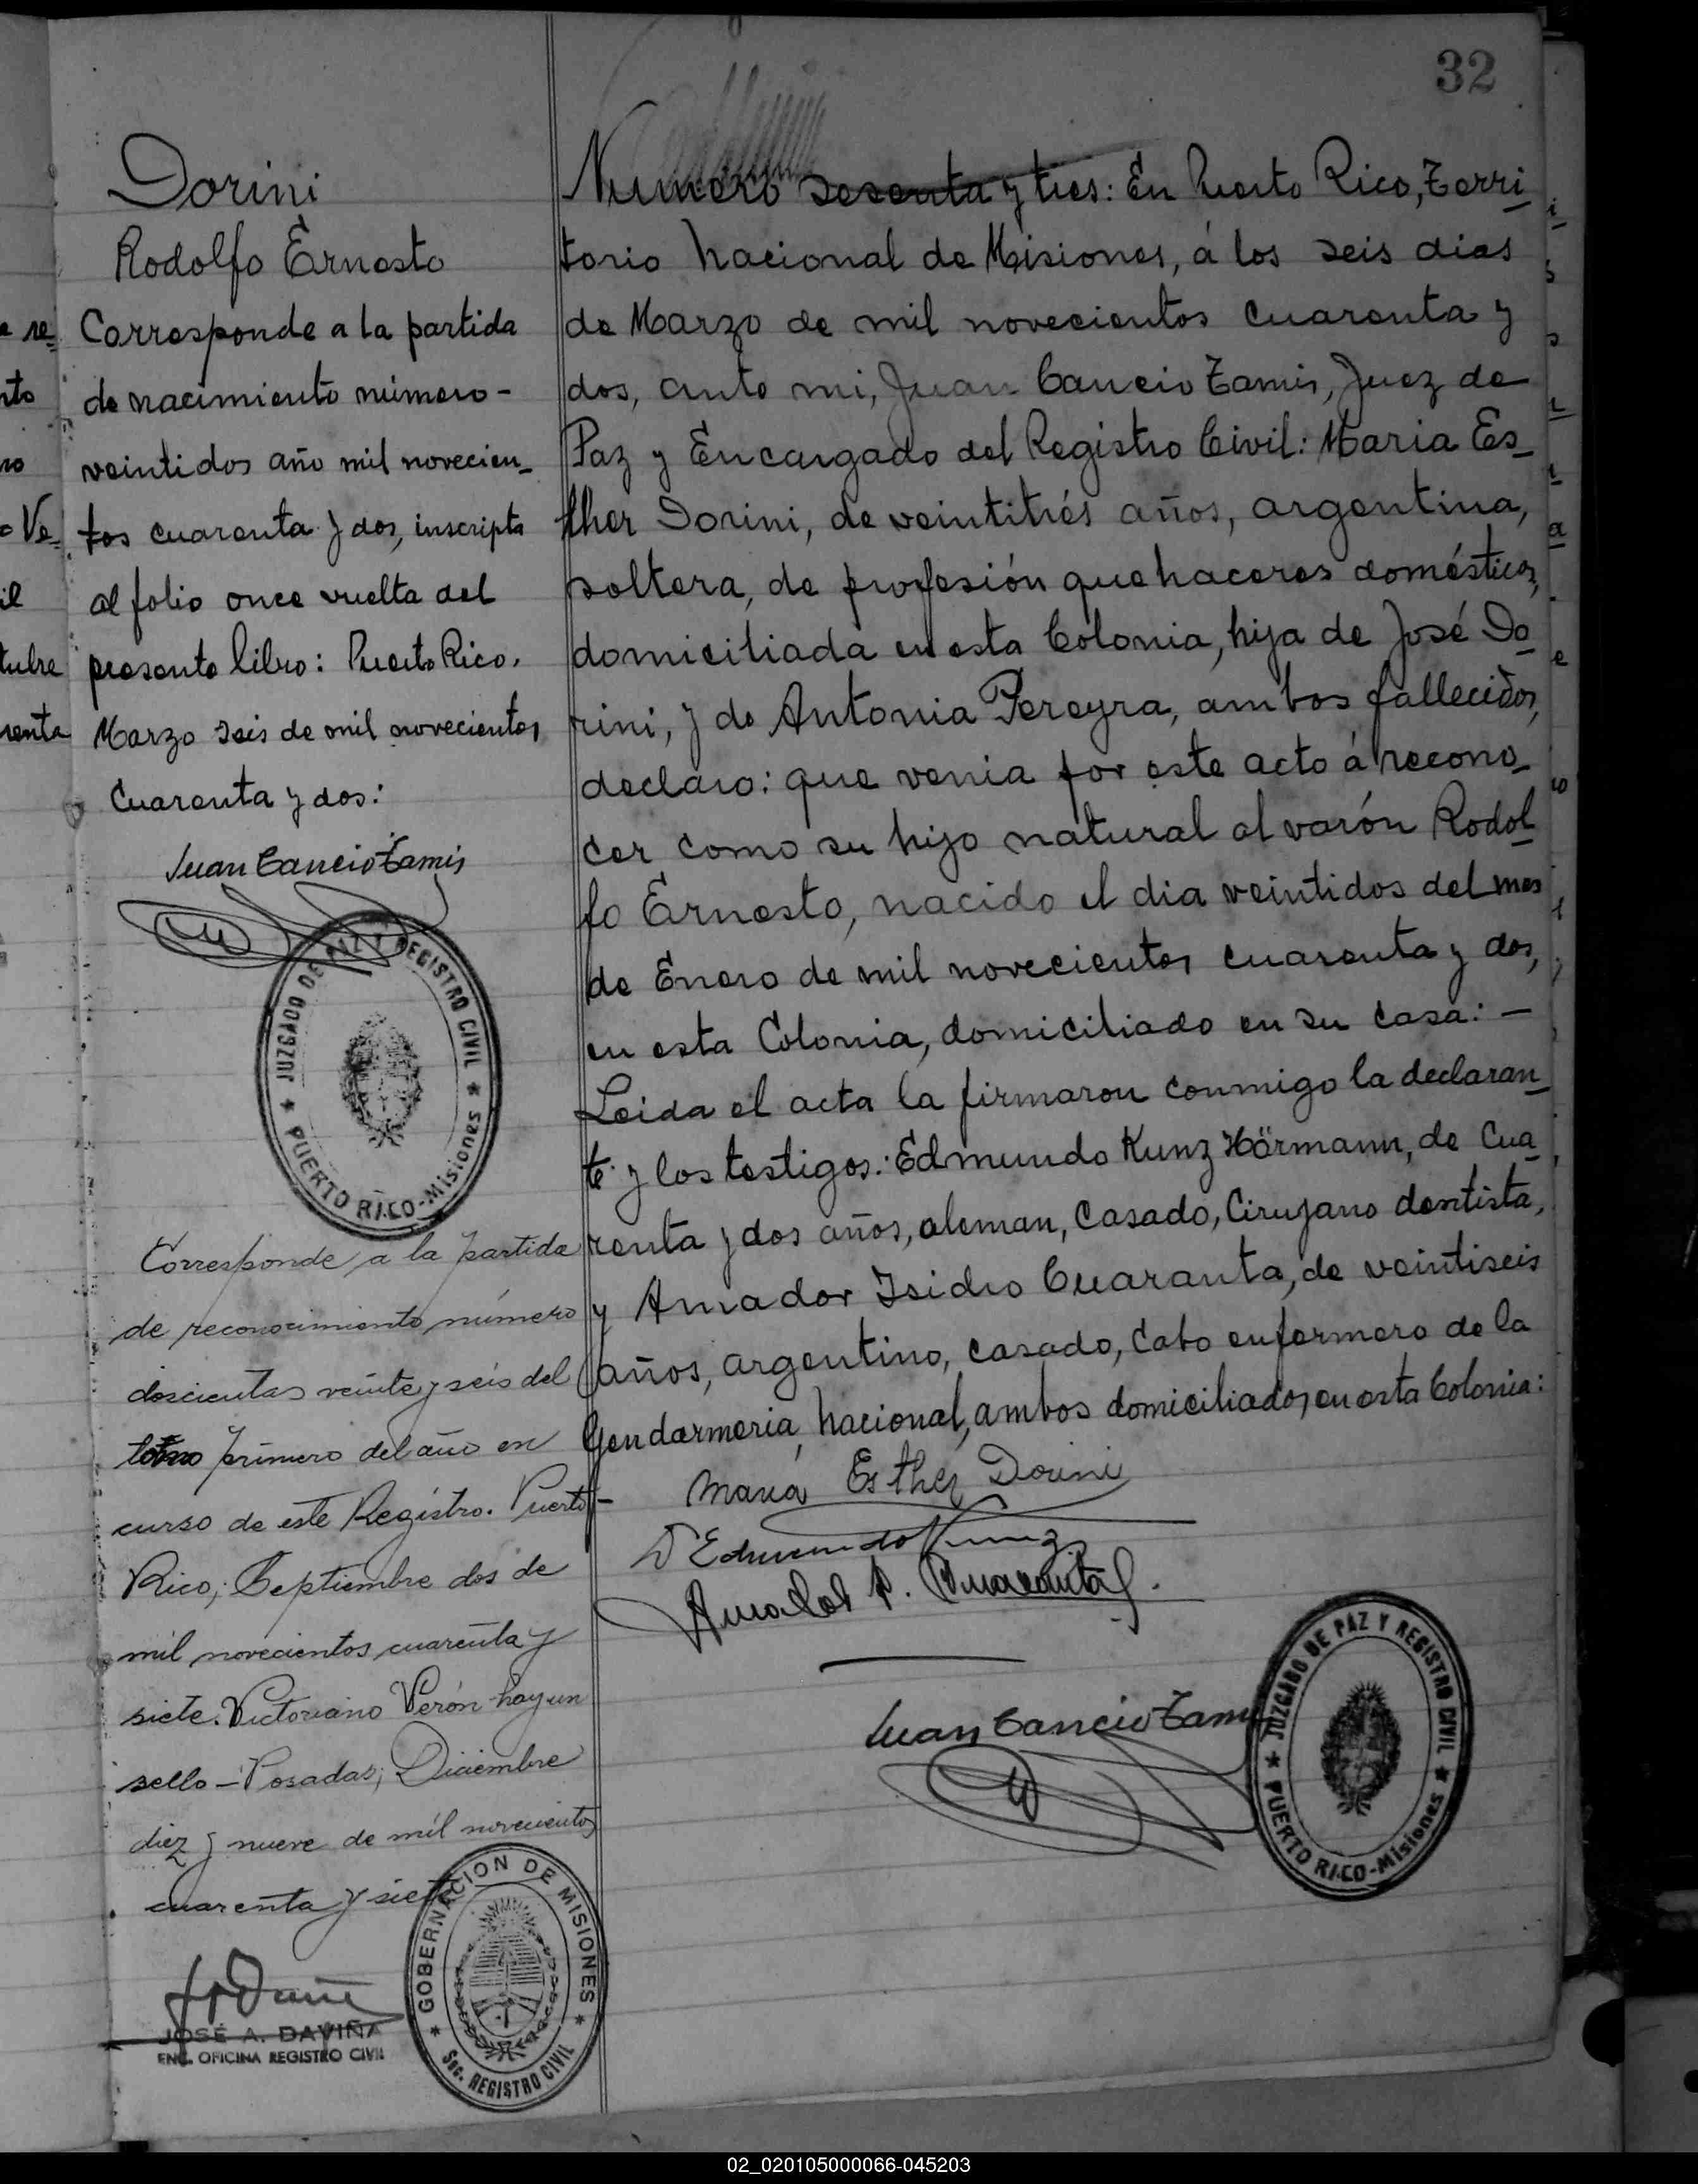 32
Dorini
Rodolfo Ernesto
Corresponde a la partida
de nacimiento número -
veintidos año mil novecien_
tos cuarenta y dos, inscripta
al folio once vuelta del
presente libro: Puerto Rico,
Marzo seis de mil novecientos
cuarenta y dos:
Juan Cancio Tamis
JUZGADO DE PAZ Y REGISTRO CIVIL
★ PUERTO RICO-Misiones ★
Corresponde a la partida
de reconocimiento número
doscientas veinte y seis del
tomo primero del año en
curso de este Registro. Puerto-
Rico; Septiembre dos de
mil novecientos cuarenta y
siete. Victoriano Verón hay un
sello - Posadas; Diciembre
diez y nueve de mil novecientos
cuarenta y siete
JOSÉ A. DAVIÑA
ENC. OFICINA REGISTRO CIVIL
GOBERNACION DE MISIONES
★ Sec. REGISTRO CIVIL ★
Numero sesenta y tres: En Puerto Rico, Terri_
torio Nacional de Misiones, á los seis dias
de Marzo de mil novecientos cuarenta y
dos, ante mi, Juan Cancio Tamis, Juez de
Paz y Encargado del Registro Civil: Maria Es_
ther Dorini, de veintitrés años, argentina,
soltera, de profesión quehaceres domésticos,
domiciliada en esta Colonia, hija de José Do_
rini, y de Antonia Pereyra, ambos fallecidos,
declaro: que venia por este acto á recono_
cer como su hijo natural al varón Rodol_
fo Ernesto, nacido el dia veintidos del mes
de Enero de mil novecientos cuarenta y dos,
en esta Colonia, domiciliado en su casa: —
Leida el acta la firmaron conmigo la declaran_
te y los testigos: Edmundo Kunz Hörmann, de cua_
renta y dos años, aleman, casado, Cirujano dentista,
y Amador Isidro Cuaranta, de veintiseis
años, argentino, casado, Cabo enfermero de la
Gendarmeria Nacional, ambos domiciliados en esta Colonia:
Maria Esther Dorini
Dr Edmundo Kunz
Juan Cancio Tamis
JUZGADO DE PAZ Y REGISTRO CIVIL
★ PUERTO RICO-Misiones ★
02_020105000066-045203